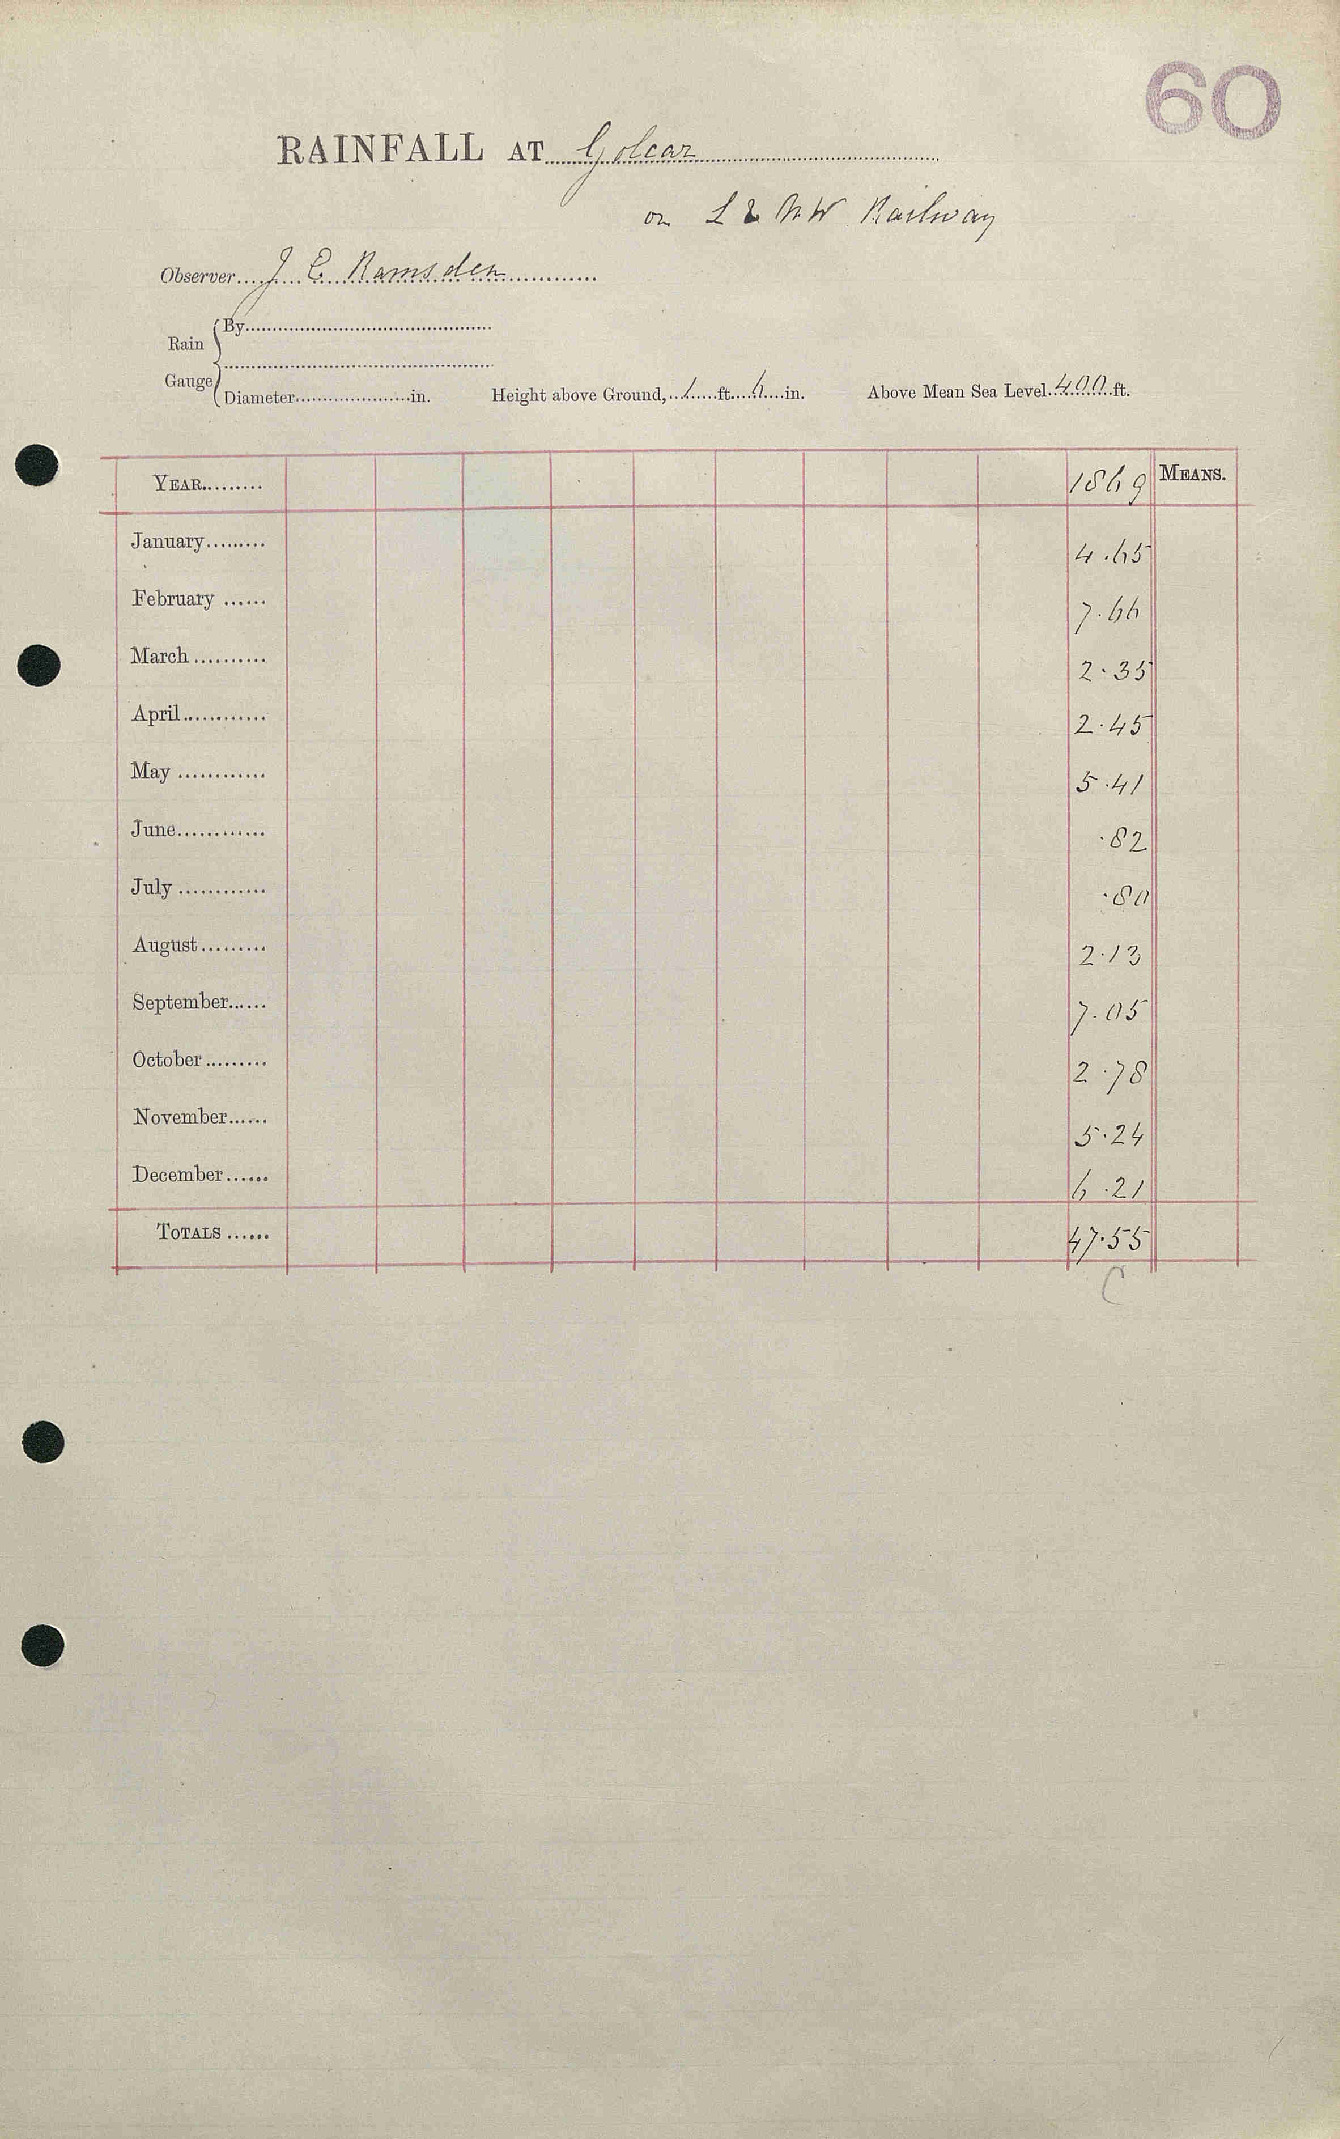 60
RAINFALL AT Golcar
on L & NW Railway
Observer J E Ramsden
Rain Gauge
By
Diameter in. Height above Ground, 1 ft. 6 in. Above Mean Sea Level 400 ft.
YEAR 1869 MEANS.
January 4.65
February 7.66
March 2.35
April 2.45
May 5.41
June .82
July .80
August 2.13
September 7.05
October 2.78
November 5.24
December 6.21
TOTALS 47.55
C